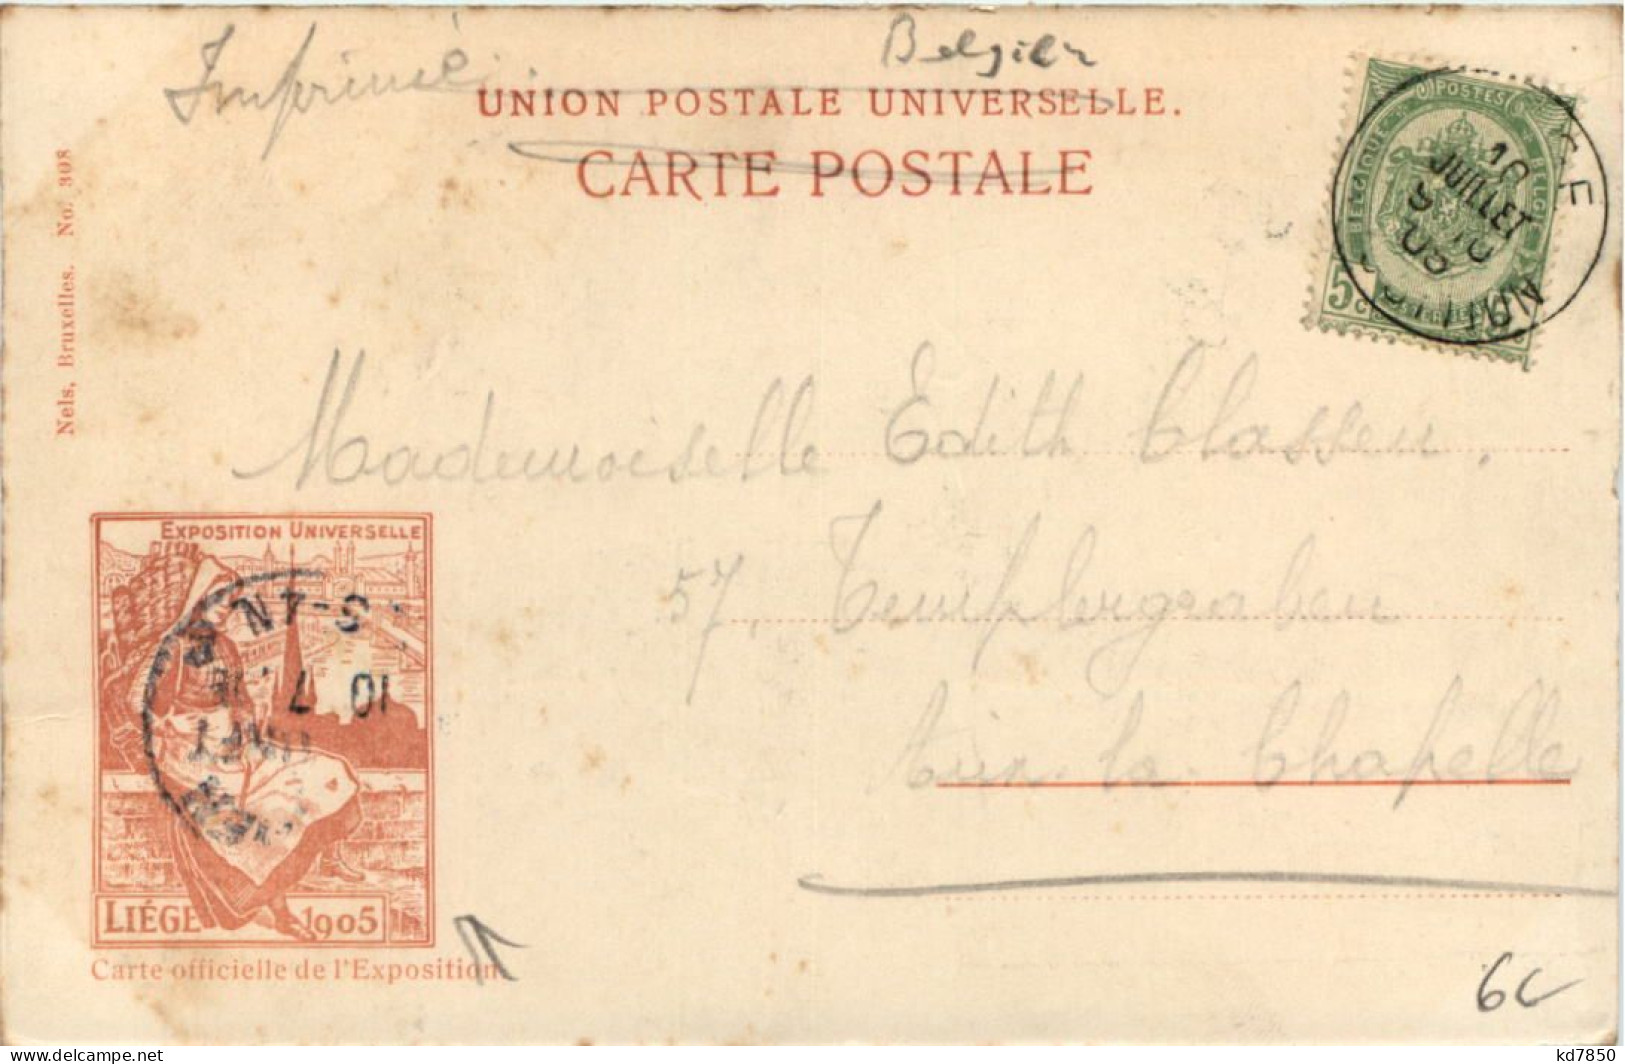 Imprimé.
Belgien
UNION POSTALE UNIVERSELLE.
CARTE POSTALE
Nels, Bruxelles. No. 308
POSTES
BELGIQUE
BELGIË
5c
10
JUILLET
Mademoiselle Edith Classen,
57, Templergraben
Aix-la-Chapelle
EXPOSITION UNIVERSELLE
10 7
LIÉGE 1905
Carte officielle de l'Exposition
6c
kd7850